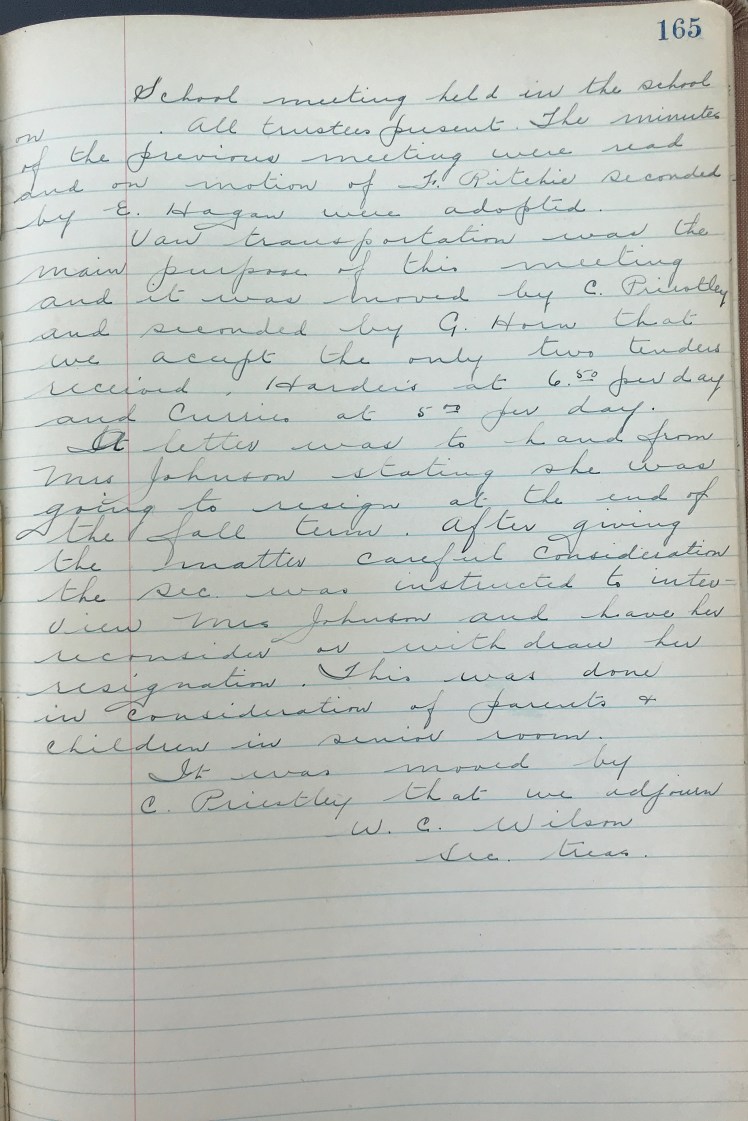 165
School meeting held in the school
on . All trustees present. The minutes
of the previous meeting were read
and on motion of F. Ritchie seconded
by E. Hagan were adopted.
Van transportation was the
main purpose of this meeting
and it was moved by C. Priestley
and seconded by G. Horn that
we accept the only two tenders
received. Hardie's at 6.50 per day
and Curries at 5 per day.
A letter was to hand from
Mrs Johnson stating she was
going to resign at the end of
the fall term. After giving
the matter careful consideration
the sec. was instructed to inter-
view Mrs Johnson and have her
reconsider or withdraw her
resignation. This was done
in consideration of parents &
children in senior room.
It was moved by
C. Priestley that we adjourn
W. C. Wilson
Sec. treas.